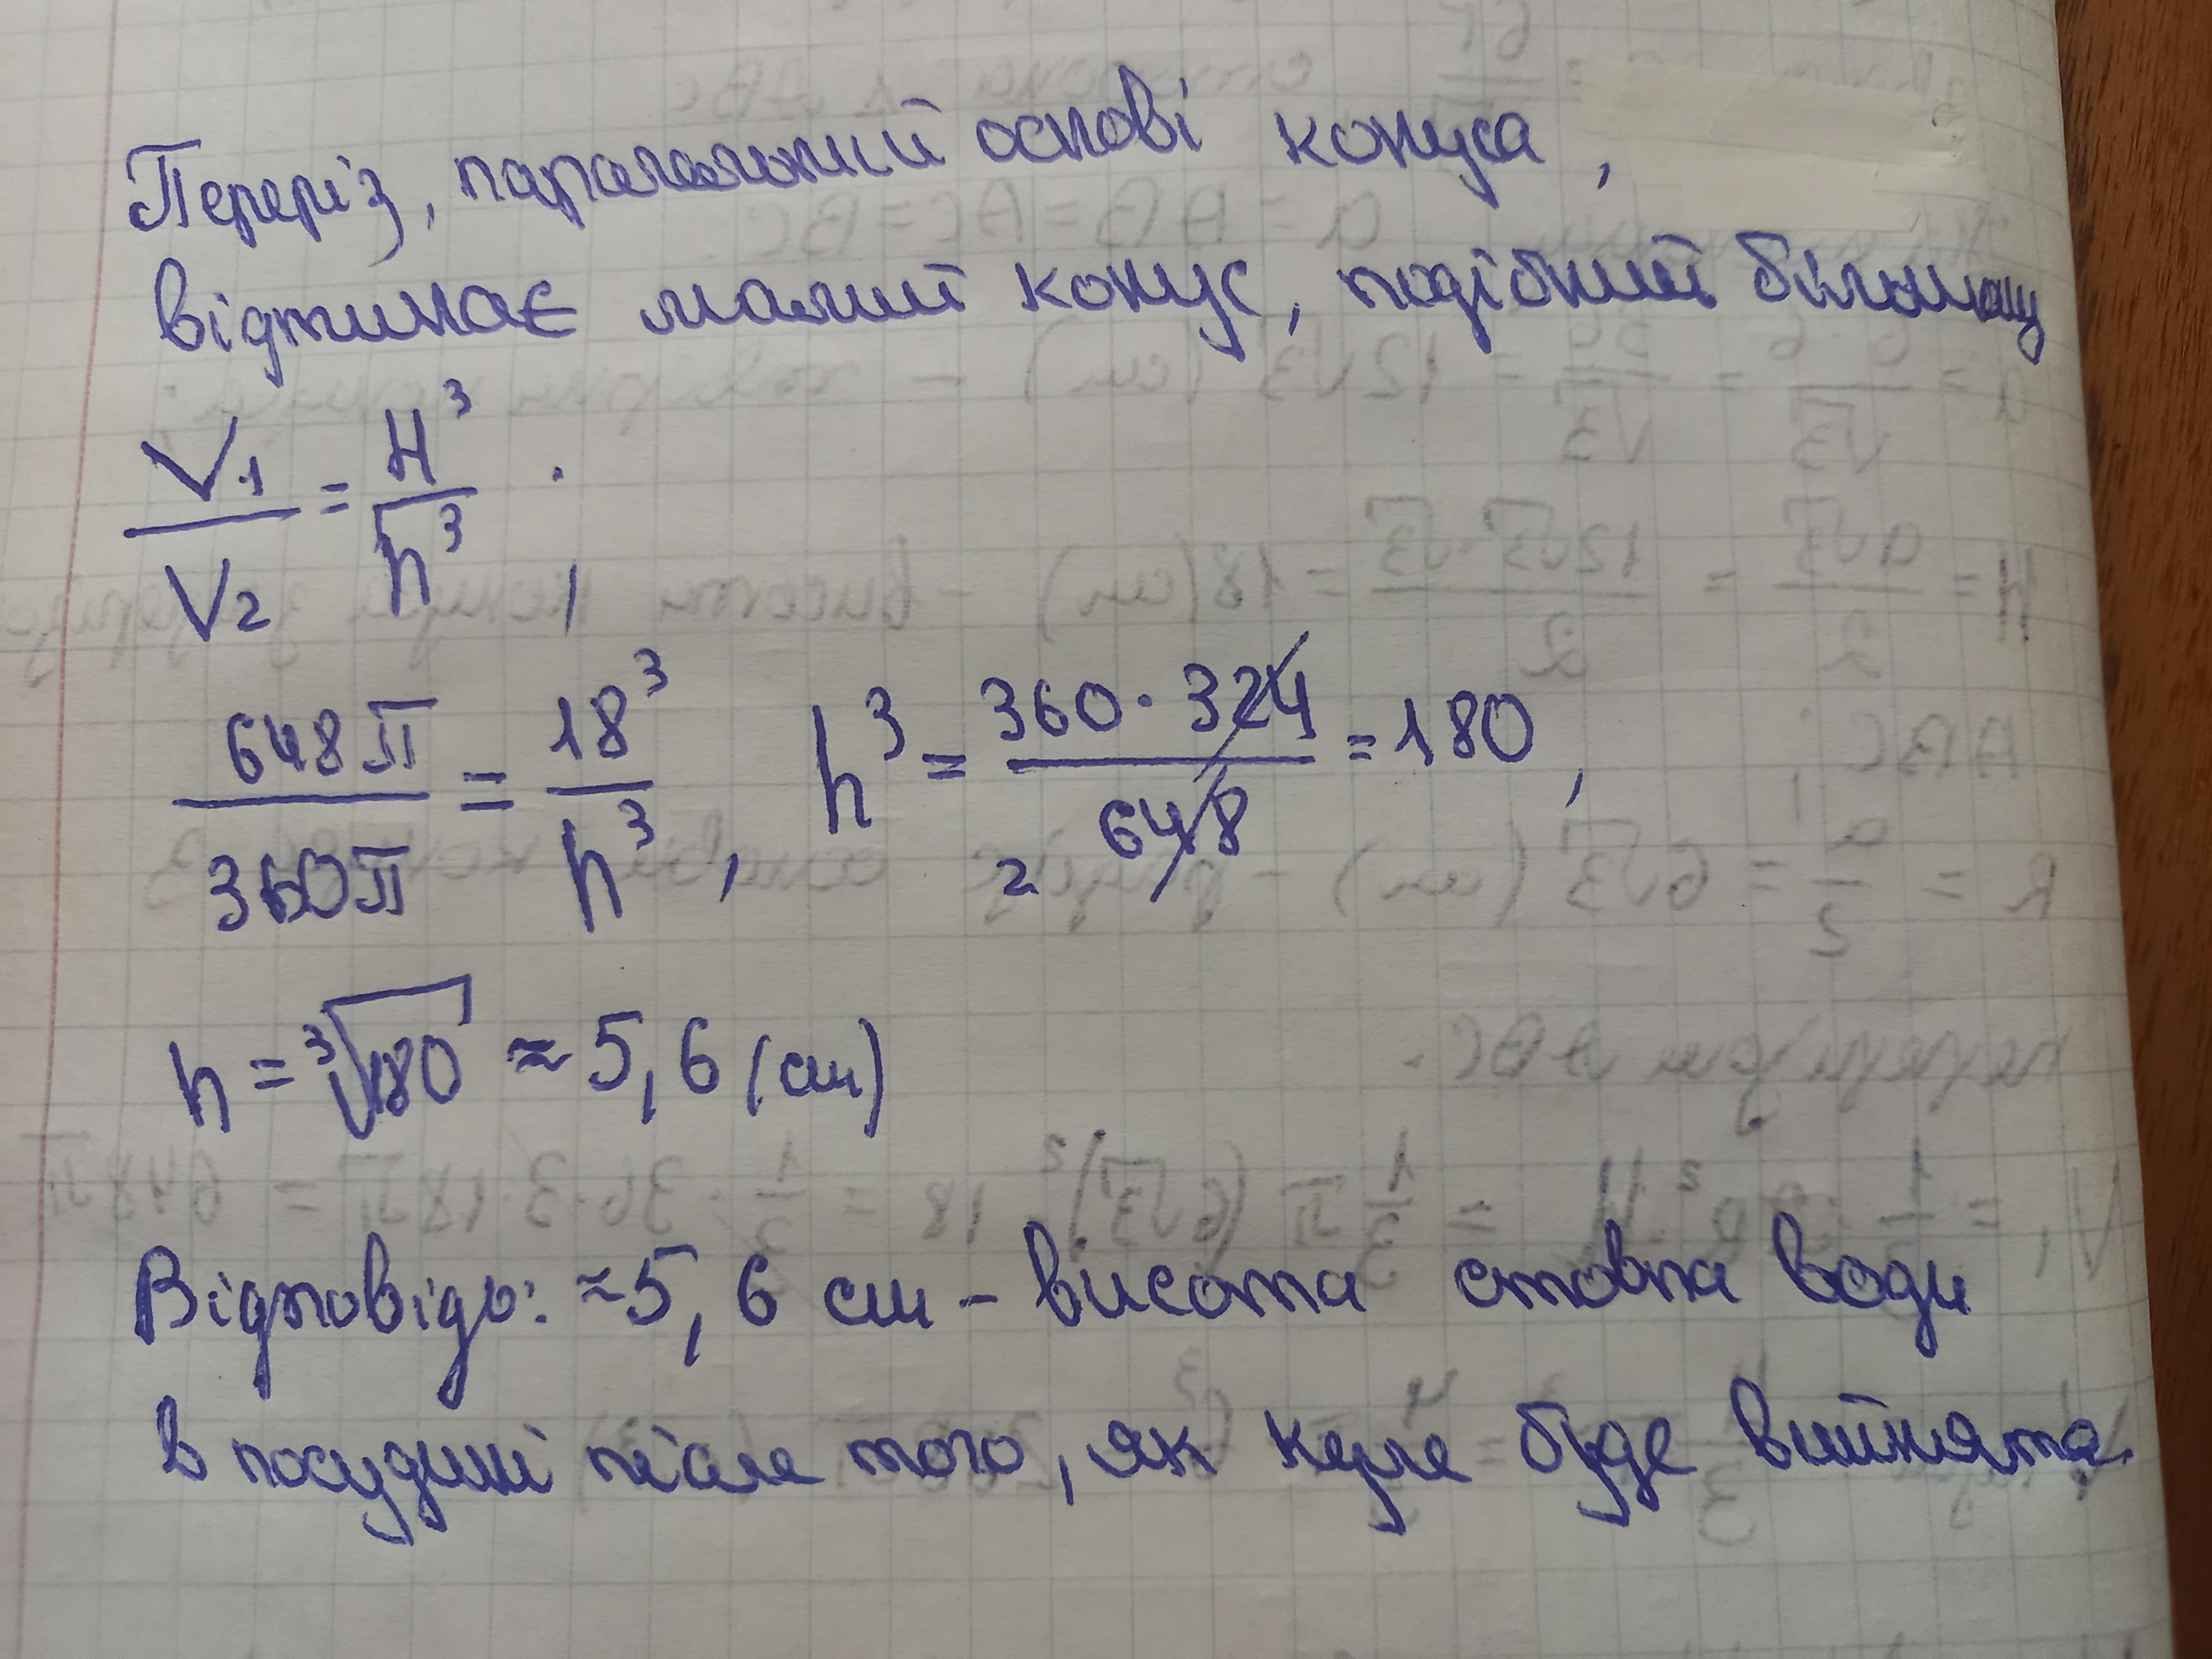 Переріз, паралельний основі конуса,
відтинає малий конус, подібний більшому
V₁/V₂ = H³/h³,
648π/360π = 18³/h³, h³ = 360·324/648 = 180,
2
h = ³√180 ≈ 5,6 (см)
Відповідь: ≈5,6 см – висота стовпа води
в посудині після того, як куля буде вийнята.